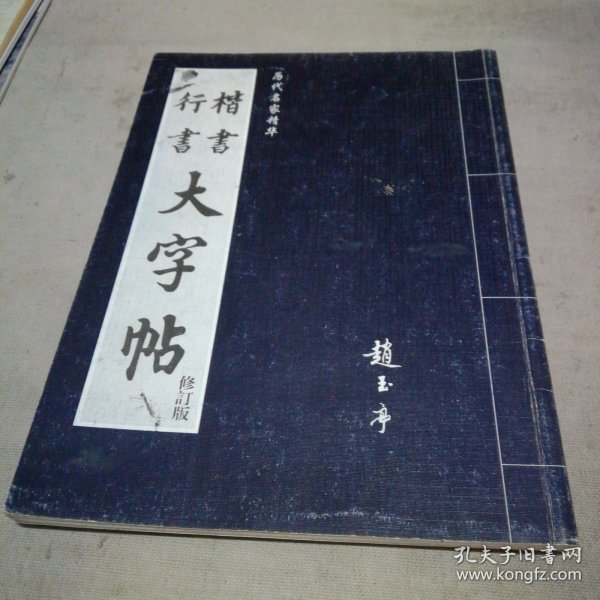 历代名家精华
楷書
行書
大字帖
修訂版
趙玉亭
孔夫子旧書网
www.kongfz.com